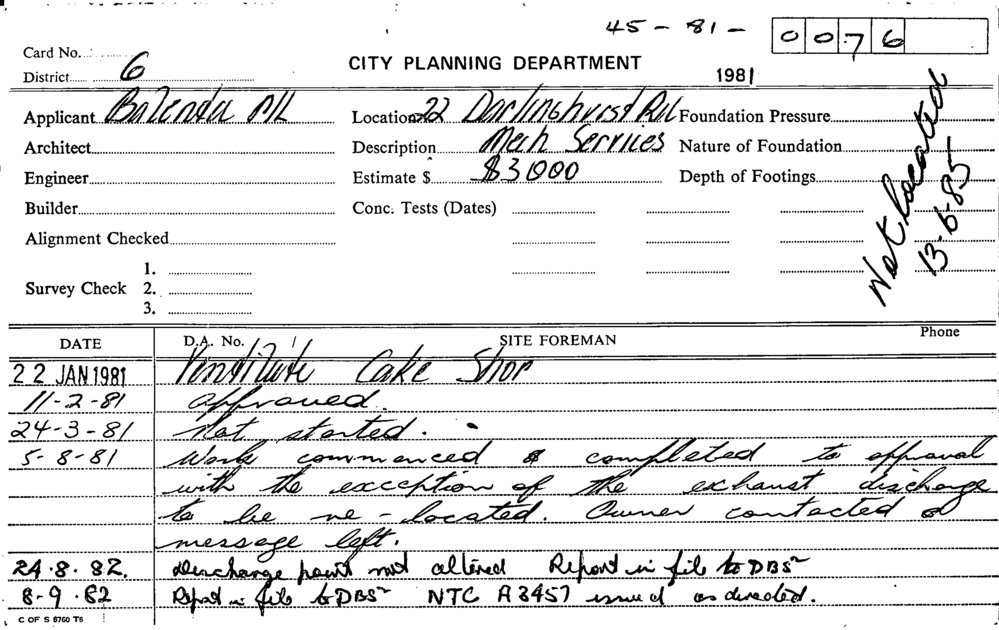 45 - 81 - 0076
Card No.
District 6
CITY PLANNING DEPARTMENT
1981
Applicant Balenda P/L
Location 22 Darlinghurst Rd
Foundation Pressure
Architect
Description Mech Services
Nature of Foundation
Engineer
Estimate $ $3000
Depth of Footings
Builder
Conc. Tests (Dates)
Not located
13-6-85
Alignment Checked
1.
Survey Check 2.
3.
DATE D.A. No. SITE FOREMAN Phone
22 JAN 1981 Ventilate Cake Shop
11-2-81 approved.
24-3-81 Not started.
5-8-81 Work commenced & completed to approval
with the exception of the exhaust discharge
to be re-located. Owner contacted &
message left.
24.8.82. Discharge point not altered Report in file to DBS
8-9.82 Report in file to DBS NTC A3457 issued as directed.
C OF S 6760 T6